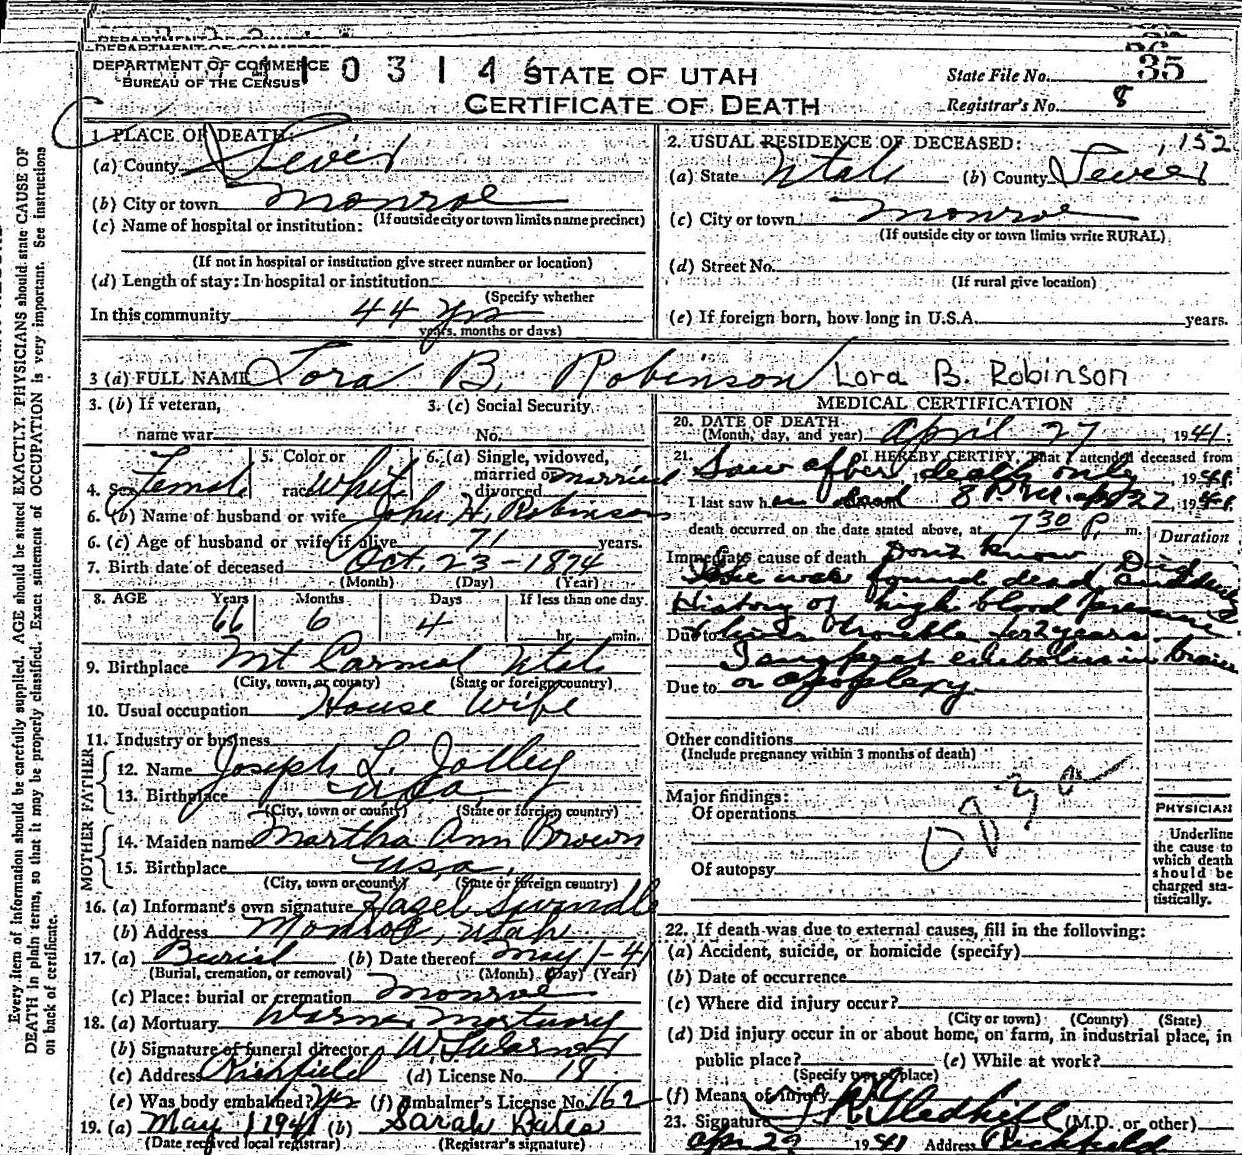 DEPARTMENT OF COMMERCE
BUREAU OF THE CENSUS
STATE OF UTAH
CERTIFICATE OF DEATH
State File No. 35
Registrar's No. 8
1. PLACE OF DEATH:
(a) County Sevier
(b) City or town Monroe
(If outside city or town limits name precinct)
(c) Name of hospital or institution:
(If not in hospital or institution give street number or location)
(d) Length of stay: In hospital or institution
(Specify whether
In this community 44 yrs
years, months or days)
2. USUAL RESIDENCE OF DECEASED: 152
(a) State Utah (b) County Sevier
(c) City or town Monroe
(If outside city or town limits write RURAL)
(d) Street No.
(If rural give location)
(e) If foreign born, how long in U.S.A. years.
3 (a) FULL NAME Lora B. Robinson Lora B. Robinson
3. (b) If veteran,
name war
3. (c) Social Security
No.
4. Sex Female
5. Color or
race White
6. (a) Single, widowed,
married or
divorced married
6. (b) Name of husband or wife John H. Robinson
6. (c) Age of husband or wife if alive 71 years.
7. Birth date of deceased Oct. 23 - 1874
(Month) (Day) (Year)
8. AGE Years Months Days If less than one day
66 6 4 hr. min.
9. Birthplace Mt Carmel Utah
(City, town, or county) (State or foreign country)
10. Usual occupation House Wife
11. Industry or business
FATHER
12. Name Joseph L. Jolley
13. Birthplace
(City, town or county) (State or foreign country)
MOTHER
14. Maiden name Martha Ann Brown
15. Birthplace USA
(City, town or county) (State or foreign country)
16. (a) Informant's own signature Hazel Swindle
(b) Address Monroe, Utah
17. (a) Burial (b) Date thereof May 1-41
(Burial, cremation, or removal) (Month) (Day) (Year)
(c) Place: burial or cremation Monroe
18. (a) Mortuary Mortuary
(b) Signature of funeral director
(c) Address Richfield (d) License No. 18
(e) Was body embalmed? Yes (f) Embalmer's License No. 162
19. (a) May 1 1941 (b) Sarah
(Date received local registrar) (Registrar's signature)
MEDICAL CERTIFICATION
20. DATE OF DEATH
(Month, day, and year) April 27, 1941
21. I HEREBY CERTIFY, That I attended deceased from
Saw after death only, 19
I last saw h dead 8 P.M. Apr 27, 19
death occurred on the date stated above, at 7 30 P. m.
Duration
Immediate cause of death Don't know, Died
She was found dead suddenly
History of high blood pressure
Due to trouble for 2 years
I suspect embolus in brain
Due to or apoplexy
Other conditions
(Include pregnancy within 3 months of death)
Major findings:
Of operations
Of autopsy
PHYSICIAN
Underline
the cause to
which death
should be
charged sta-
tistically.
22. If death was due to external causes, fill in the following:
(a) Accident, suicide, or homicide (specify)
(b) Date of occurrence
(c) Where did injury occur?
(City or town) (County) (State)
(d) Did injury occur in or about home, on farm, in industrial place, in
public place? (e) While at work?
(Specify type of place)
(f) Means of injury
23. Signature Gledhill (M.D. or other)
Apr 29 1941 Address Richfield
Every item of information should be carefully supplied. AGE should be stated EXACTLY. PHYSICIANS should state CAUSE OF
DEATH in plain terms, so that it may be properly classified. Exact statement of OCCUPATION is very important. See instructions
on back of certificate.